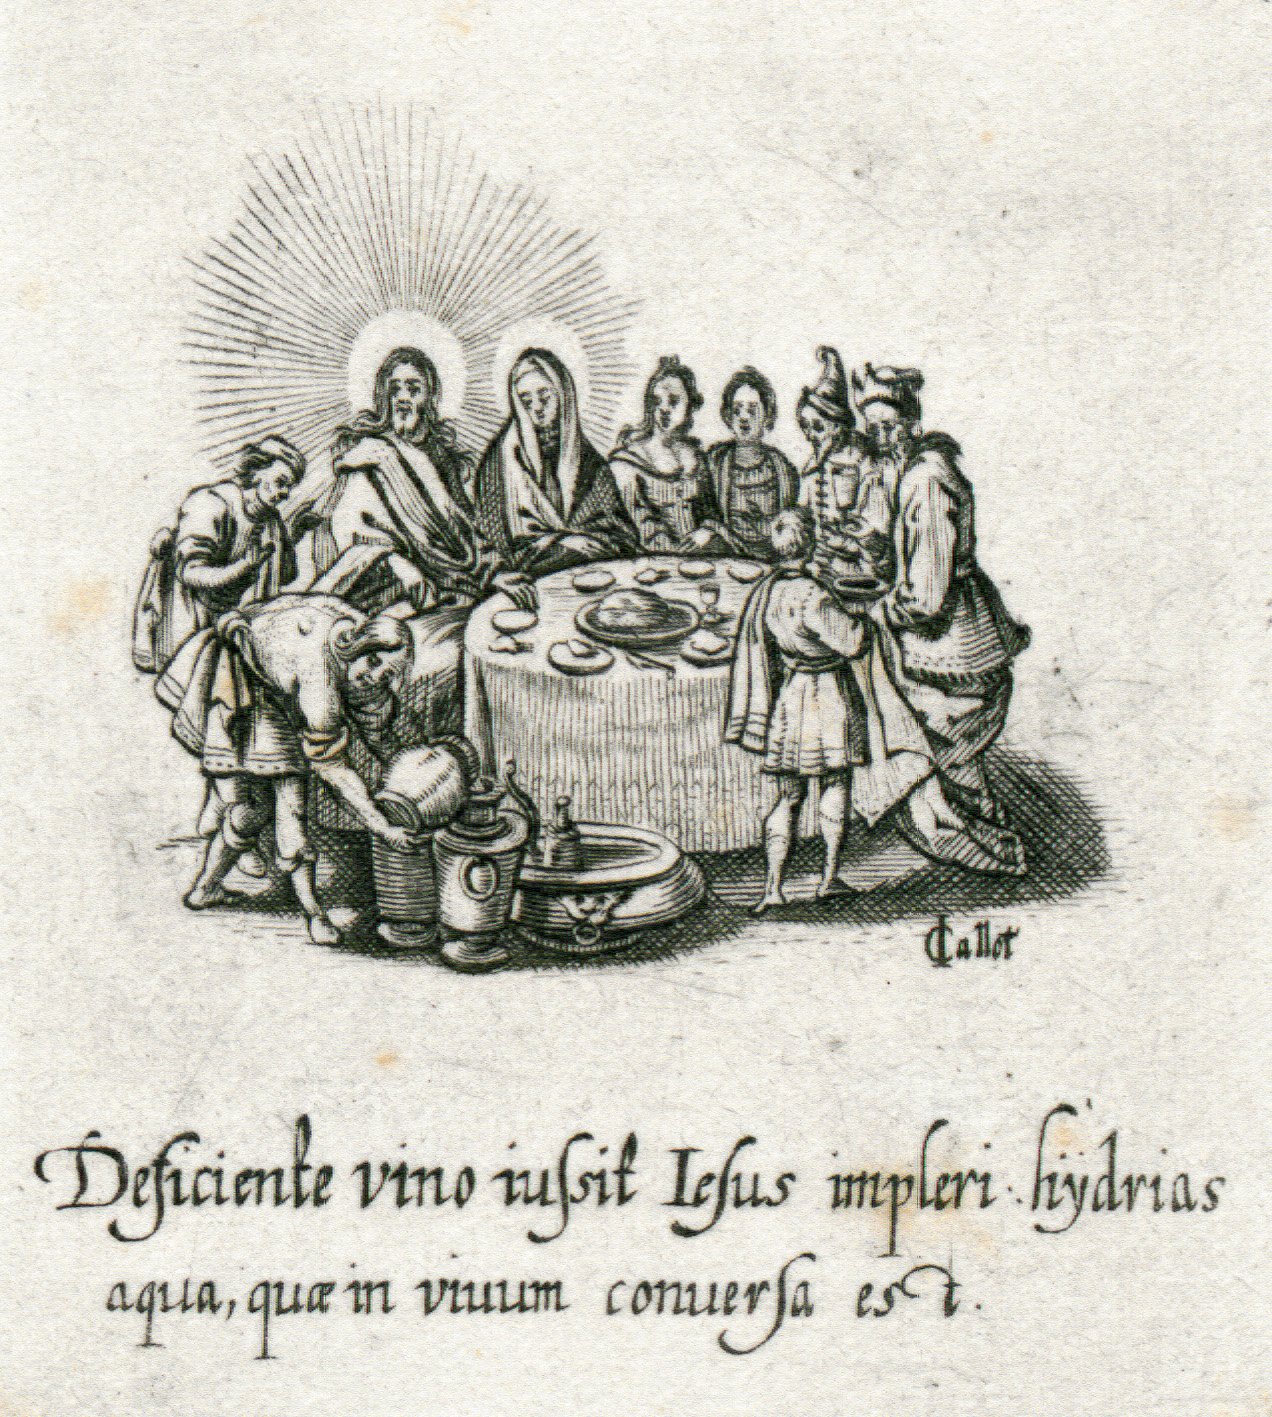 Callot
Deficiente vino iuſsit Ieſus impleri hÿdrias
aqua, quæ in viuum converſa est.